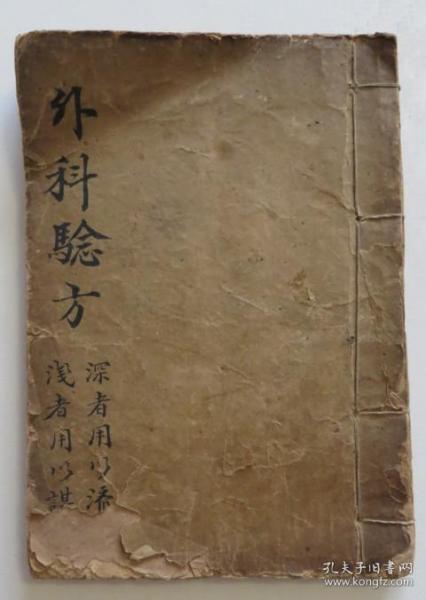 外科騐方
深者用以添
淺者用以謀
孔夫子旧书网
www.kongfz.com